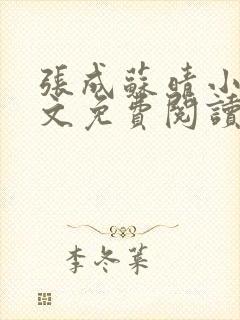 張成蘇晴小
文免費閱讀
李冬葉